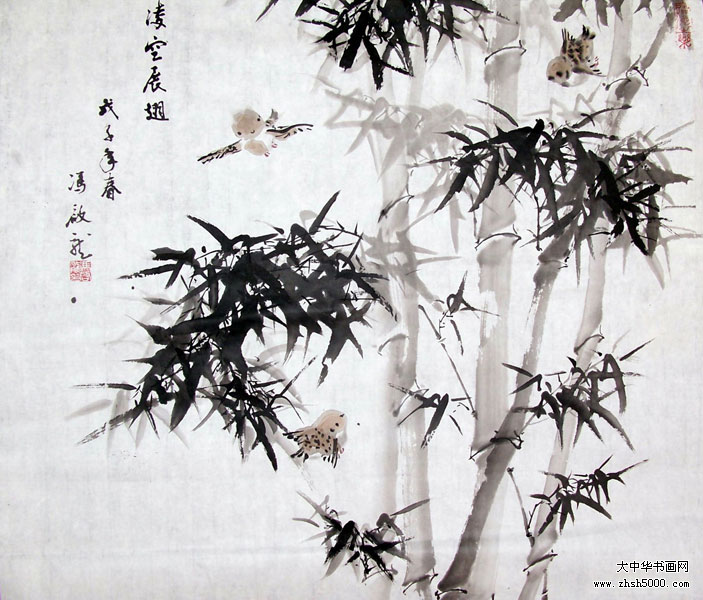 凌空展翅
戊子年春
冯啟龙
大中华书画网
www.zhsh5000.com